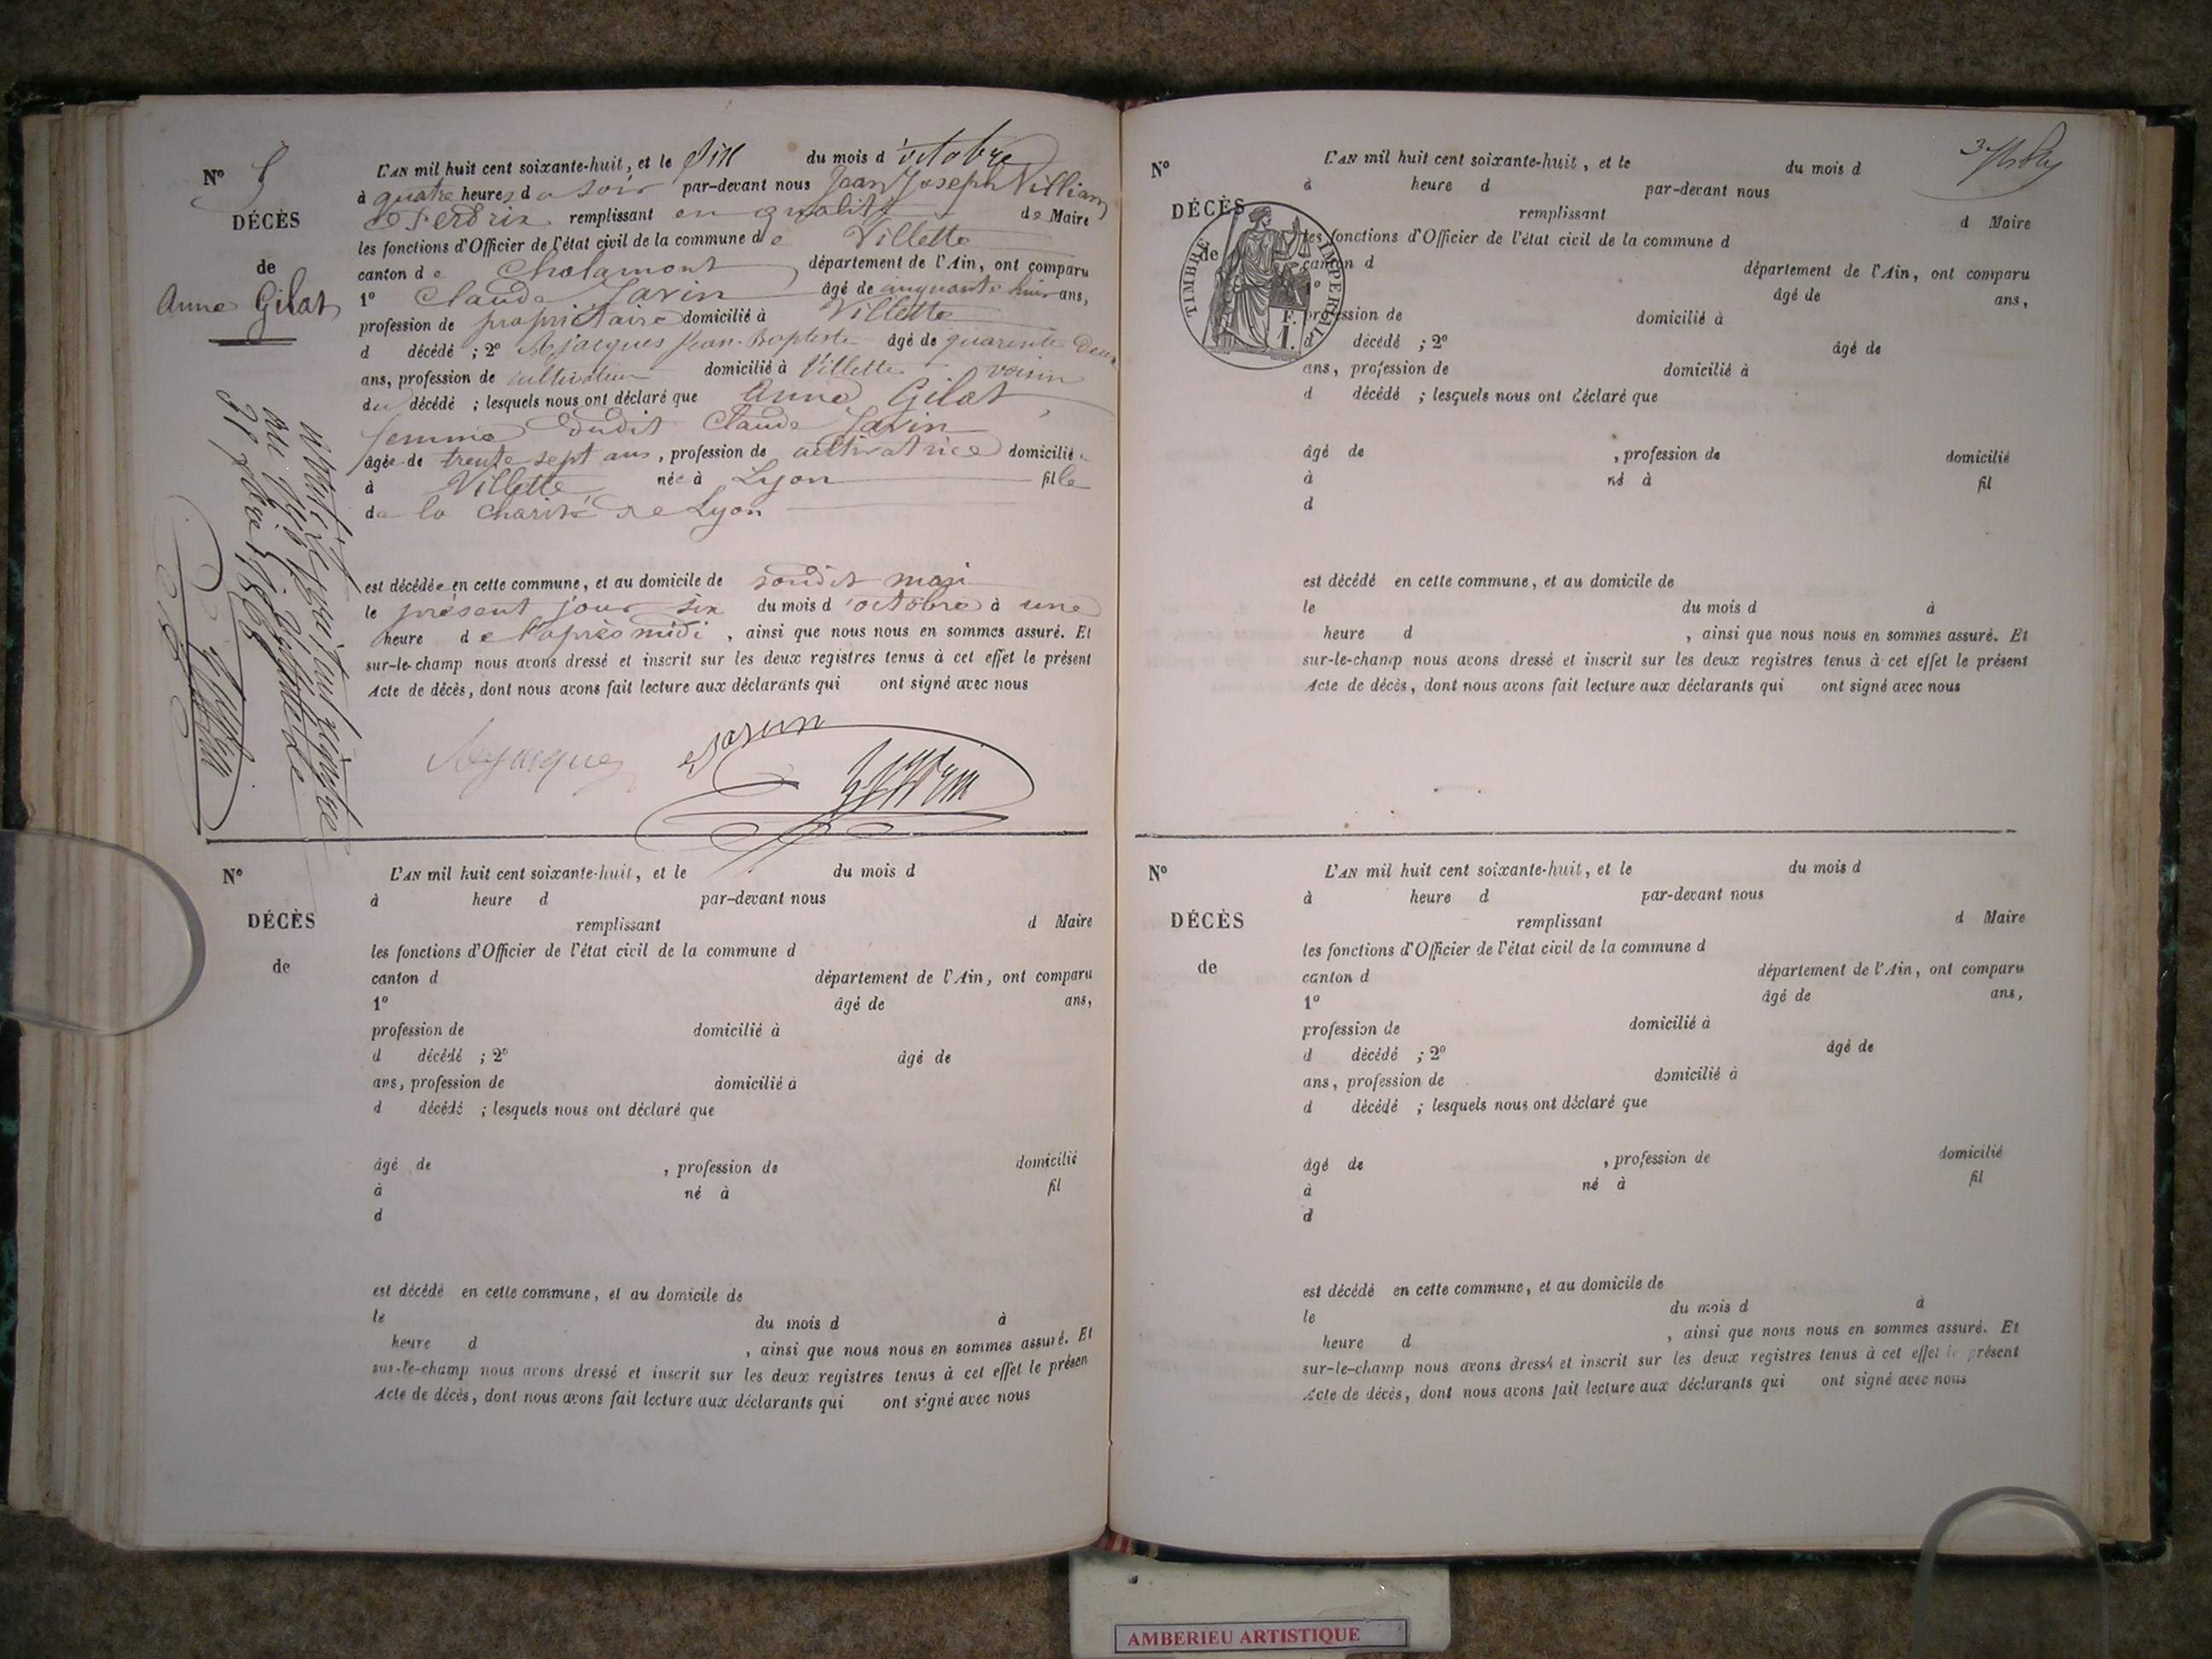 Nº
DÉCÈS
de
Anne Gilat
L'AN mil huit cent soixante-huit, et le six du mois d'octobre
à quatre heures du soir par-devant nous Jean Joseph Villiam
Perdrix remplissant en qualité de Maire
les fonctions d'Officier de l'état civil de la commune de Villette
canton de Chalamont département de l'Ain, ont comparu
1º Claude Javin âgé de cinquante huit ans,
profession de propriétaire domicilié à Villette
d décédé ; 2º Jean-Baptiste âgé de quarante deux
ans, profession de cultivateur domicilié à Villette voisin
du décédé ; lesquels nous ont déclaré que Anne Gilat
femme dudit Claude Javin
âgée de trente sept ans, profession de cultivatrice domiciliée
à Villette née à Lyon fille
de la charité de Lyon
est décédée en cette commune, et au domicile de sondit mari
le présent jour six du mois d'octobre à une
heure de l'après midi, ainsi que nous nous en sommes assuré. Et
sur-le-champ nous avons dressé et inscrit sur les deux registres tenus à cet effet le présent
Acte de décès, dont nous avons fait lecture aux déclarants qui ont signé avec nous
Javin
Nº
DÉCÈS
de
L'AN mil huit cent soixante-huit, et le du mois d
à heure d par-devant nous
remplissant d Maire
les fonctions d'Officier de l'état civil de la commune d
canton d département de l'Ain, ont comparu
1º âgé de ans,
profession de domicilié à
d décédé ; 2º âgé de
ans, profession de domicilié à
d décédé ; lesquels nous ont déclaré que
âgé de , profession de domicilié
à né à fil
d
est décédé en cette commune, et au domicile de
le du mois d à
heure d , ainsi que nous nous en sommes assuré. Et
sur-le-champ nous avons dressé et inscrit sur les deux registres tenus à cet effet le présen
Acte de décès, dont nous avons fait lecture aux déclarants qui ont signé avec nous
Nº
DÉCÈS
de
TIMBRE IMPERIAL
F.
1.
L'AN mil huit cent soixante-huit, et le du mois d
à heure d par-devant nous
remplissant d Maire
les fonctions d'Officier de l'état civil de la commune d
canton d département de l'Ain, ont comparu
1º âgé de ans,
profession de domicilié à
d décédé ; 2º âgé de
ans, profession de domicilié à
d décédé ; lesquels nous ont déclaré que
âgé de , profession de domicilié
à né à fil
d
est décédé en cette commune, et au domicile de
le du mois d à
heure d , ainsi que nous nous en sommes assuré. Et
sur-le-champ nous avons dressé et inscrit sur les deux registres tenus à cet effet le présent
Acte de décès, dont nous avons fait lecture aux déclarants qui ont signé avec nous
Nº
DÉCÈS
de
L'AN mil huit cent soixante-huit, et le du mois d
à heure d par-devant nous
remplissant d Maire
les fonctions d'Officier de l'état civil de la commune d
canton d département de l'Ain, ont comparu
1º âgé de ans,
profession de domicilié à
d décédé ; 2º âgé de
ans, profession de domicilié à
d décédé ; lesquels nous ont déclaré que
âgé de , profession de domicilié
à né à fil
d
est décédé en cette commune, et au domicile de
le du mois d à
heure d , ainsi que nous nous en sommes assuré. Et
sur-le-champ nous avons dressé et inscrit sur les deux registres tenus à cet effet le présent
Acte de décès, dont nous avons fait lecture aux déclarants qui ont signé avec nous
AMBERIEU ARTISTIQUE